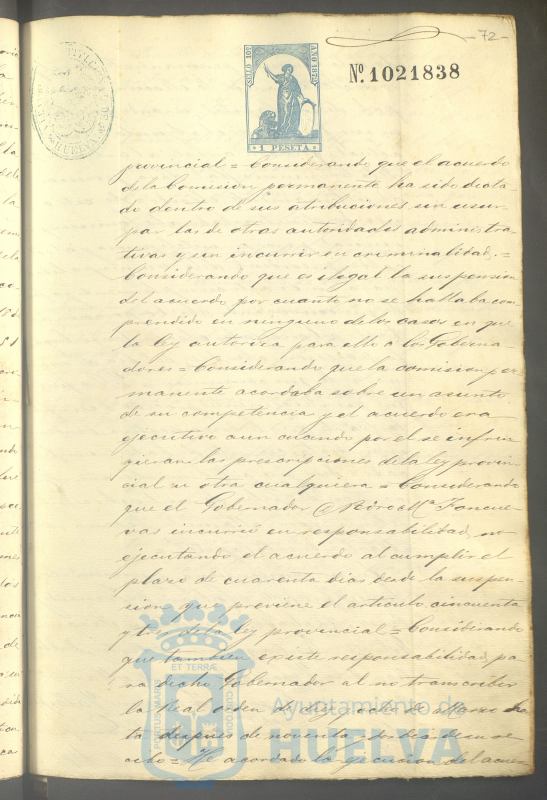 72
SELLO 10º AÑO 1872
1 PESETA
Nº. 1021838
provincial = Considerando que el acuerdo
de la Comision permanente ha sido dicta-
do dentro de sus atribuciones sin usur-
par las de otras autoridades administra-
tivas y sin incurrir en criminalidad. =
Considerando que es ilegal la suspension
del acuerdo por cuanto no se hallaba com-
prendido en ninguno de los casos en que
la ley autoriza para ello a los Goberna-
dores = Considerando que la comision per
manente acordaba sobre un asunto
de su competencia y el acuerdo era
ejecutivo aun cuando por el se infrin
gieran las prescripciones de la ley provin
cial u otra cualquiera = Considerando
que el Gobernador
vas incurrió en responsabilidad, no
ejecutando el acuerdo al cumplir el
plazo de cuarenta dias desde la suspen-
sion que previene el articulo cincuenta
y tres de la ley provincial = Considerando
que tambien existe responsabilidad pa
ra dicho Gobernador al no transcribir
la Real orden de diez y ocho de Marzo has
ta despues de noventa dias de su re
cibo = He acordado la ejecucion del acuer
Ayuntamiento de
HUELVA